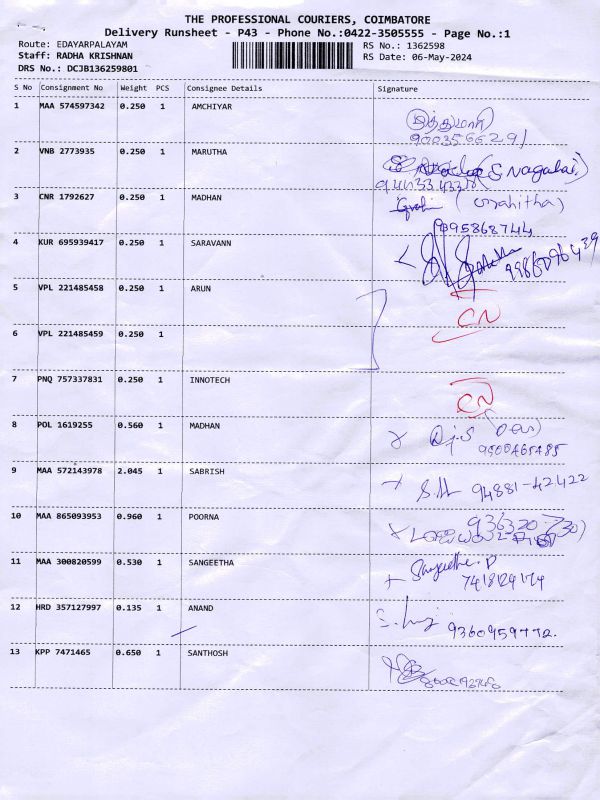 THE PROFESSIONAL COURIERS, COIMBATORE
Delivery Runsheet - P43 - Phone No.:0422-3505555 - Page No.:1
Route: EDAYARPALAYAM RS No.: 1362598
Staff: RADHA KRISHNAN RS Date: 06-May-2024
DRS No.: DCJB136259801
S No Consignment No Weight PCS Consignee Details Signature
1 MAA 574597342 0.250 1 AMCHIYAR முத்துமாரி
9003566291
2 VNB 2773935 0.250 1 MARUTHA
3 CNR 1792627 0.250 1 MADHAN
4 KUR 695939417 0.250 1 SARAVANN
5 VPL 221485458 0.250 1 ARUN CN
6 VPL 221485459 0.250 1
7 PNQ 757337831 0.250 1 INNOTECH CN
8 POL 1619255 0.560 1 MADHAN
9 MAA 572143978 2.045 1 SABRISH 94881-42422
10 MAA 865093953 0.960 1 POORNA
11 MAA 300820599 0.530 1 SANGEETHA Sangeetha.P
12 HRD 357127997 0.135 1 ANAND
9360959772.
13 KPP 7471465 0.650 1 SANTHOSH